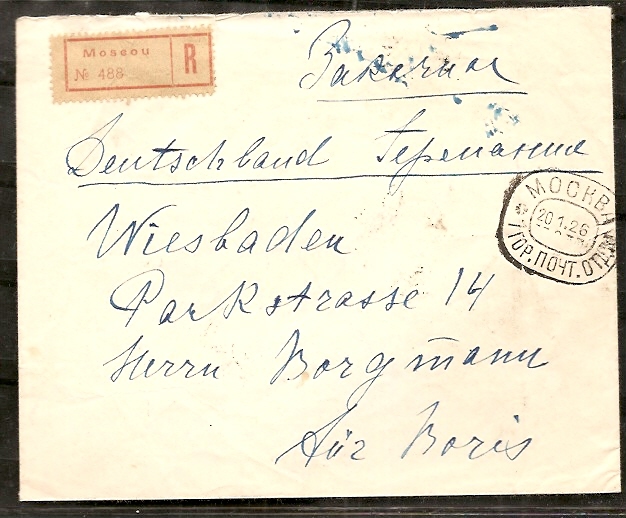 Moscou
№ 488
R
Заказное
Deutschland Германия
МОСКВА
20.1.26
ГОР. ПОЧТ. ОТД.
Wiesbaden
Parkstrasse 14
Herrn Borgmann
für Boris